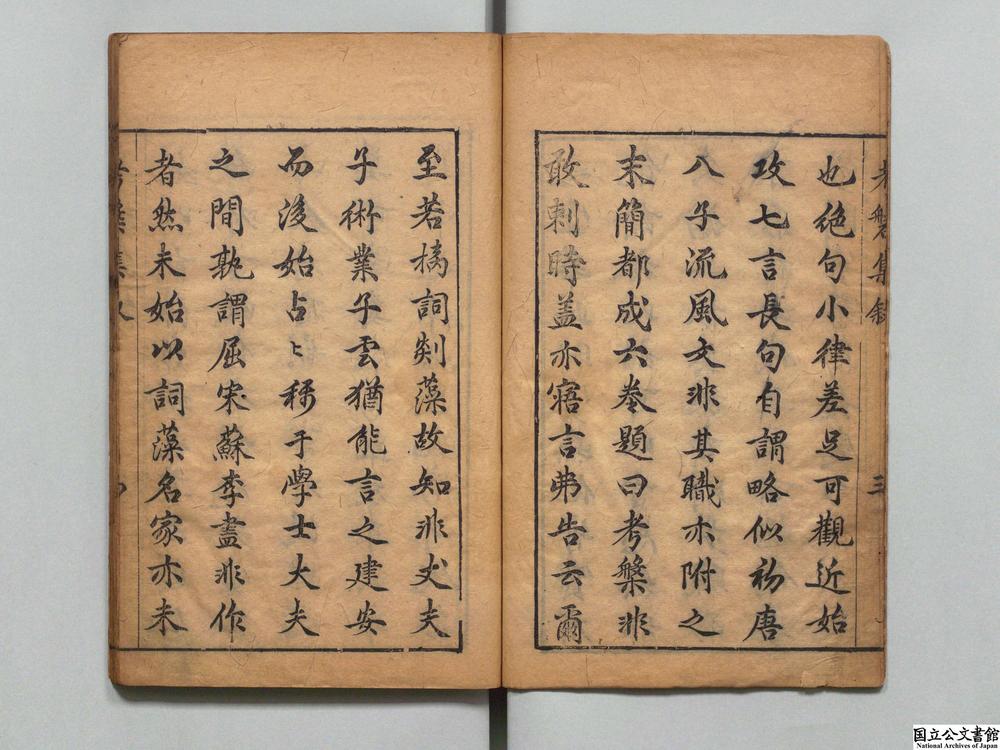 考槃集敘
三
也絕句小律差足可觀近始
攻七言長句自謂略似初唐
八子流風文非其職亦附之
末簡都成六卷題曰考槃非
敢刺時盖亦寤言弗告云爾
至若摛詞剡藻故知非丈夫
子術業子雲猶能言之建安
而後始占〻稱于學士大夫
之間孰謂屈宋蘇李盡非作
者然未始以詞藻名家亦未
国立公文書館
National Archives of Japan